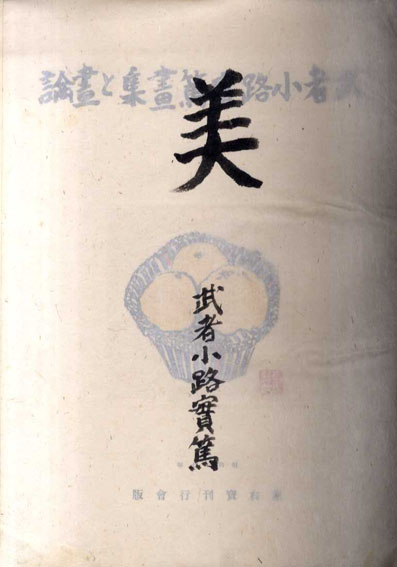 武者小路實篤畫集と畫論
美
武者小路實篤
座右寶刊行會版